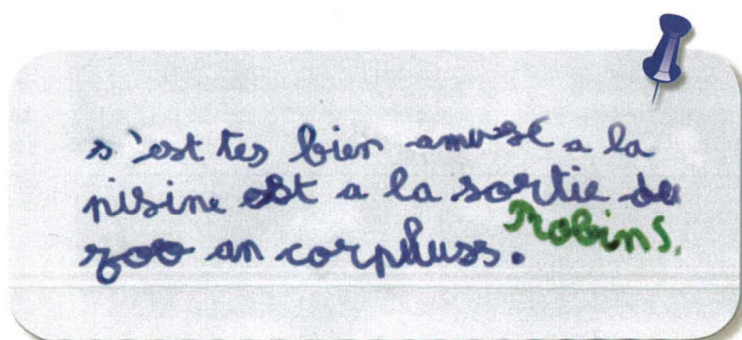 s'est tes bien amusé a la
pisine est a la sortie du
zoo an corpluss. Robins.